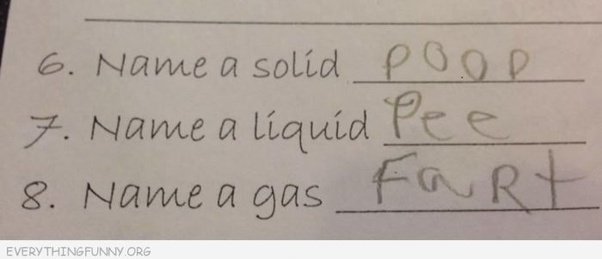 6. Name a solid poop
7. Name a liquid Pee
8. Name a gas FaRt
EVERYTHINGFUNNY.ORG